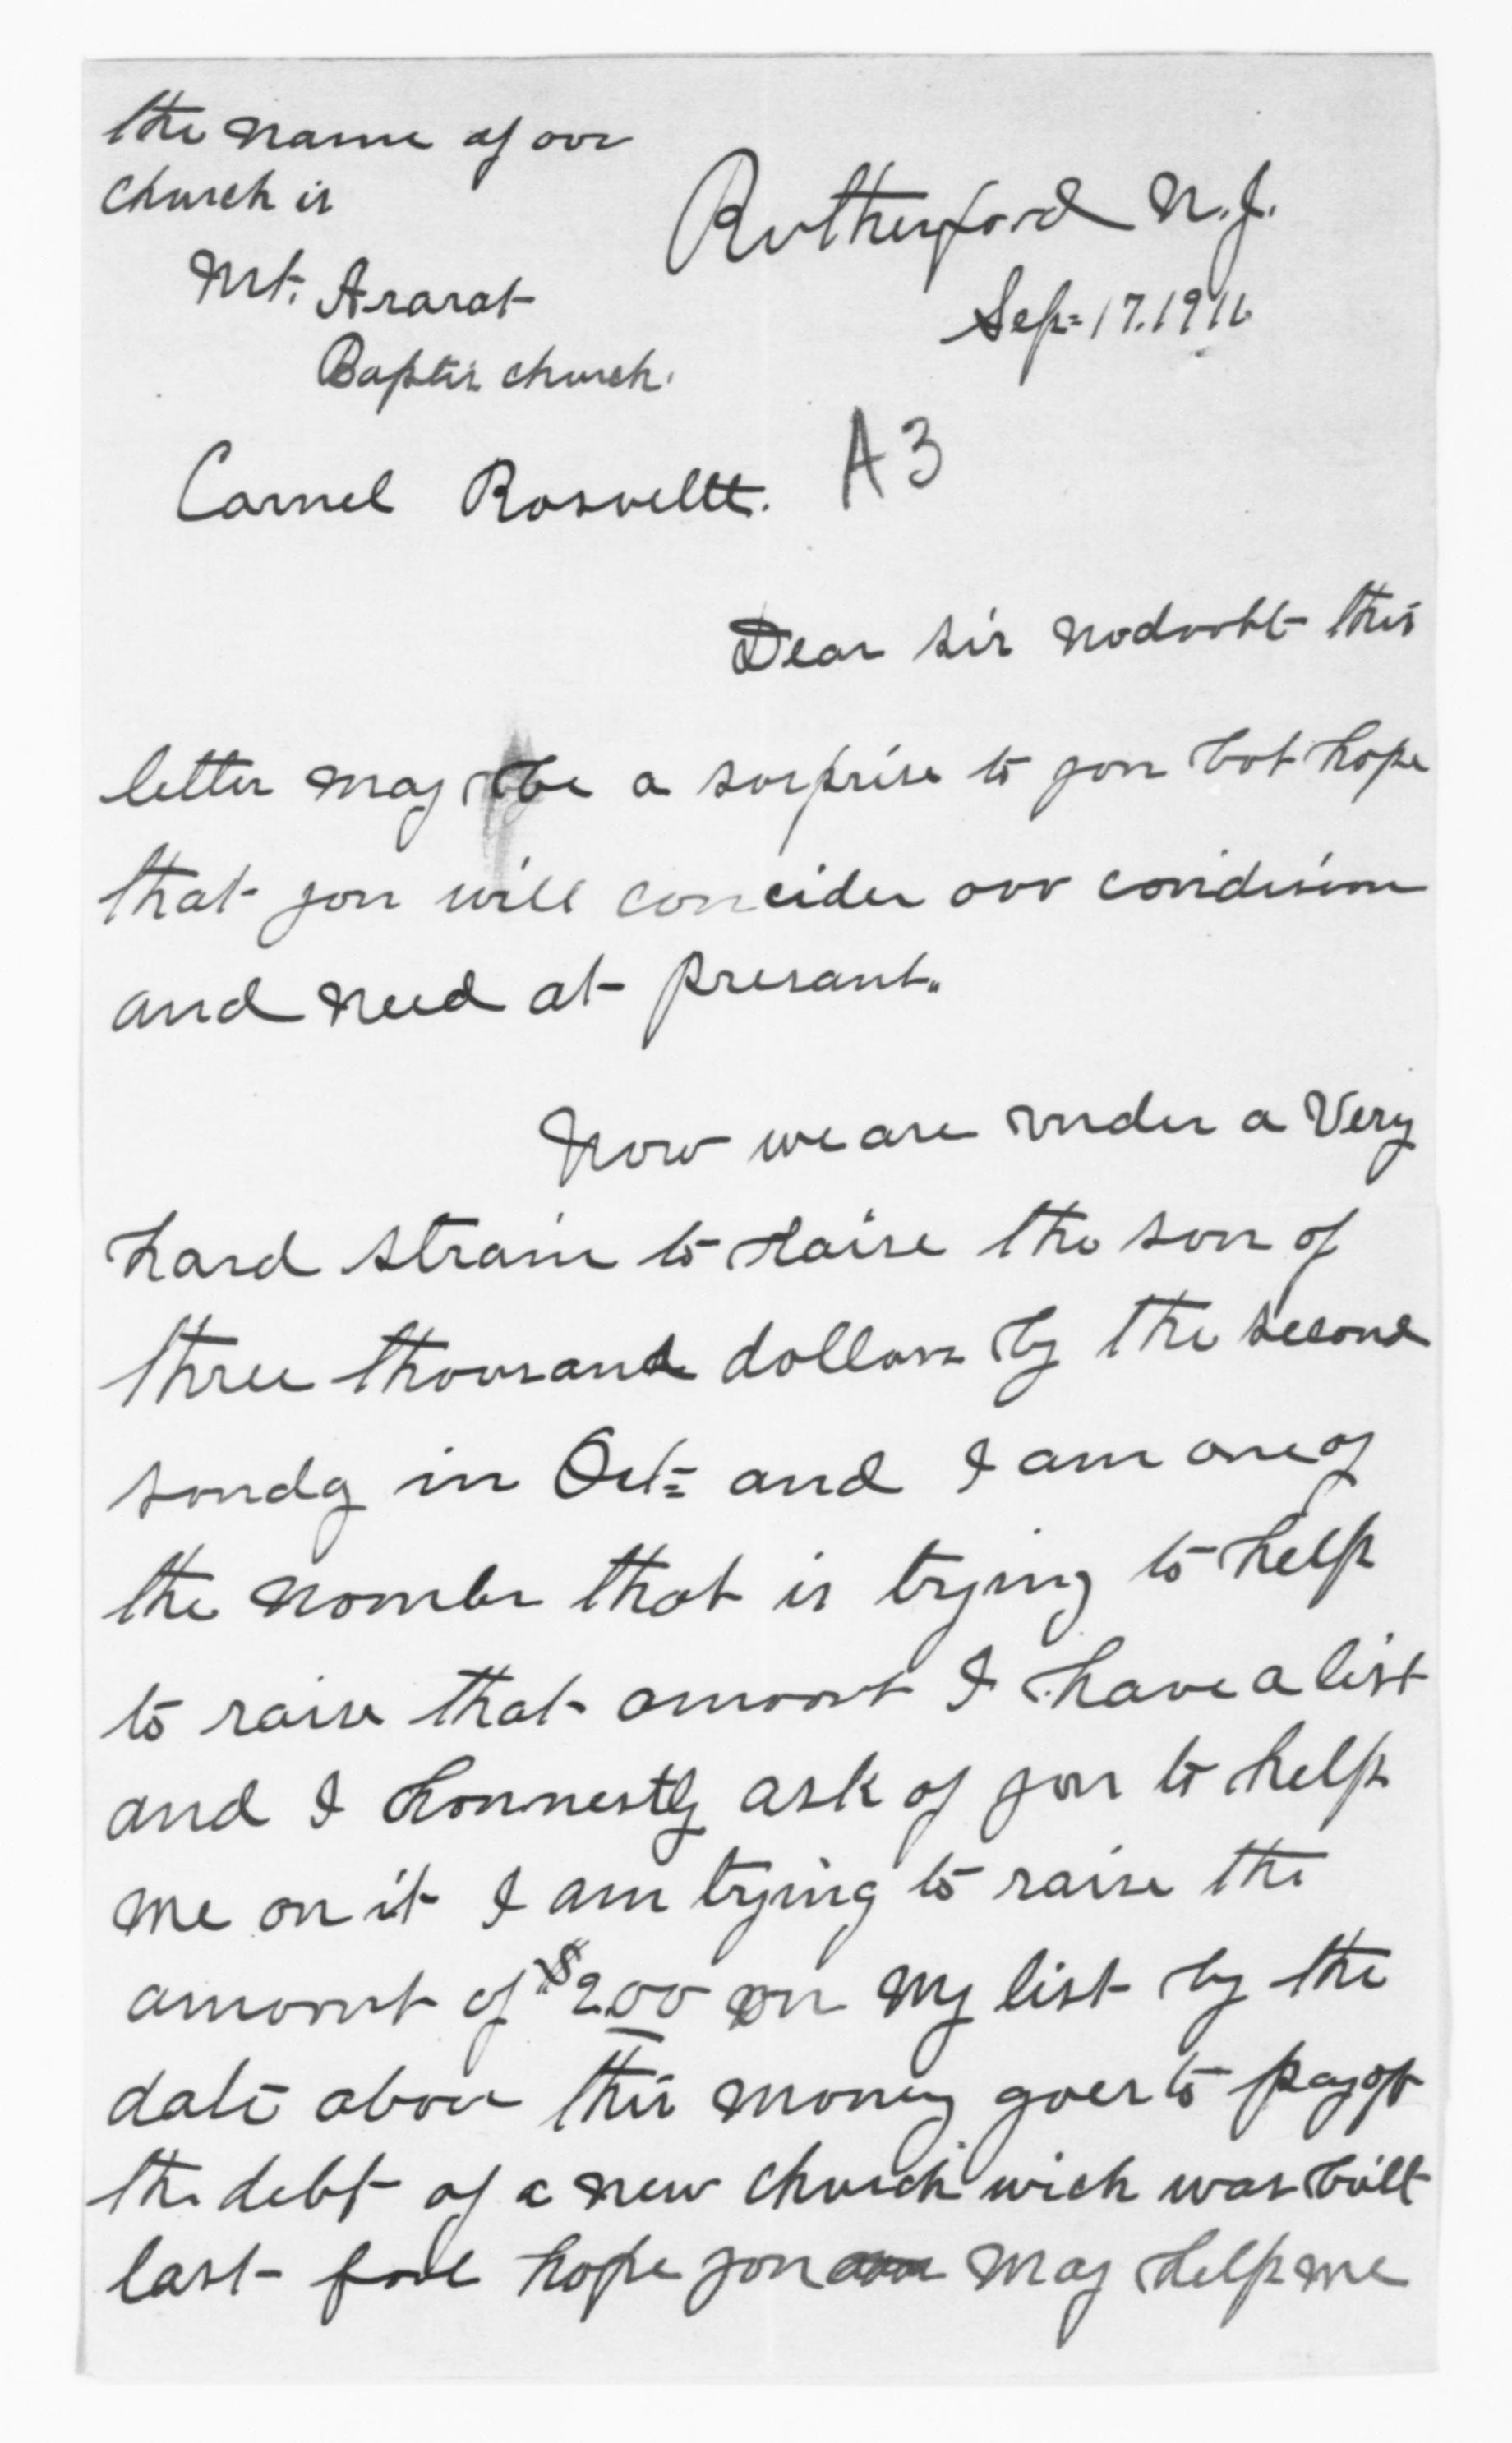 the name of our
church is
Mt. Ararat
Baptis church.
Rutherford N.J.
Sep= 17. 1916
A3
Carnel Rosveltt.
Dear sir nodoubt this
letter may be a surprise to you but hope
that you will concider our condision
and need at presant.
Now we are under a Very
hard strain to raise the sum of
three thousand dollars by the second
sunday in Oct= and I am one of
the number that is trying to help
to raise that amount I have a list
and I honnestly ask of you to help
me on it I am trying to raise the
amount of $200 on my list by the
date above this money goes to pay of
the debt of a new church wich was built
last hope you may help me